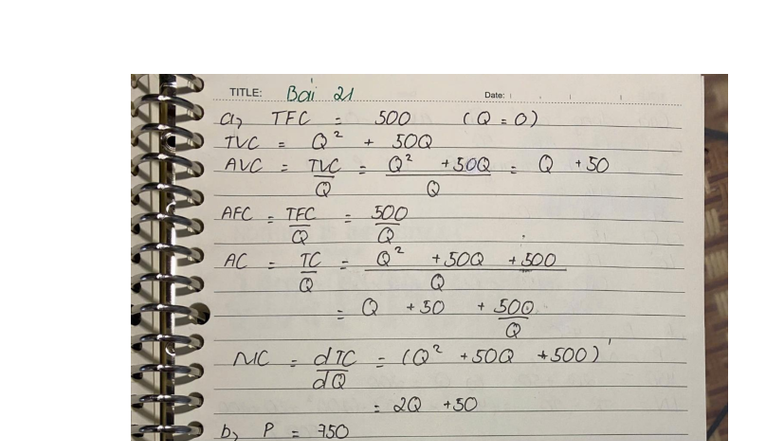 TITLE: Bài 21 Date:
a, TFC = 500 (Q = 0)
TVC = Q² + 50Q
AVC = TVC/Q = (Q² + 50Q)/Q = Q + 50
AFC = TFC/Q = 500/Q
AC = TC/Q = (Q² + 50Q + 500)/Q
= Q + 50 + 500/Q
MC = dTC/dQ = (Q² + 50Q + 500)'
= 2Q + 50
b, P = 750